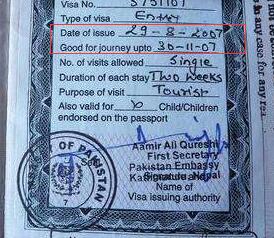 Visa No. S751101
Type of visa Entry
Date of issue 29-8-2007
Good for journey upto 30-11-07
No. of visits allowed Single
Duration of each stay Two Weeks
Purpose of visit Tourist
Also valid for Child/Children
endorsed on the passport
Aamir Ali Qureshi
First Secretary
Pakistan Embassy
Kathmandu, Nepal
Signature
Name of
Visa issuing authority
OF PAKISTAN
7